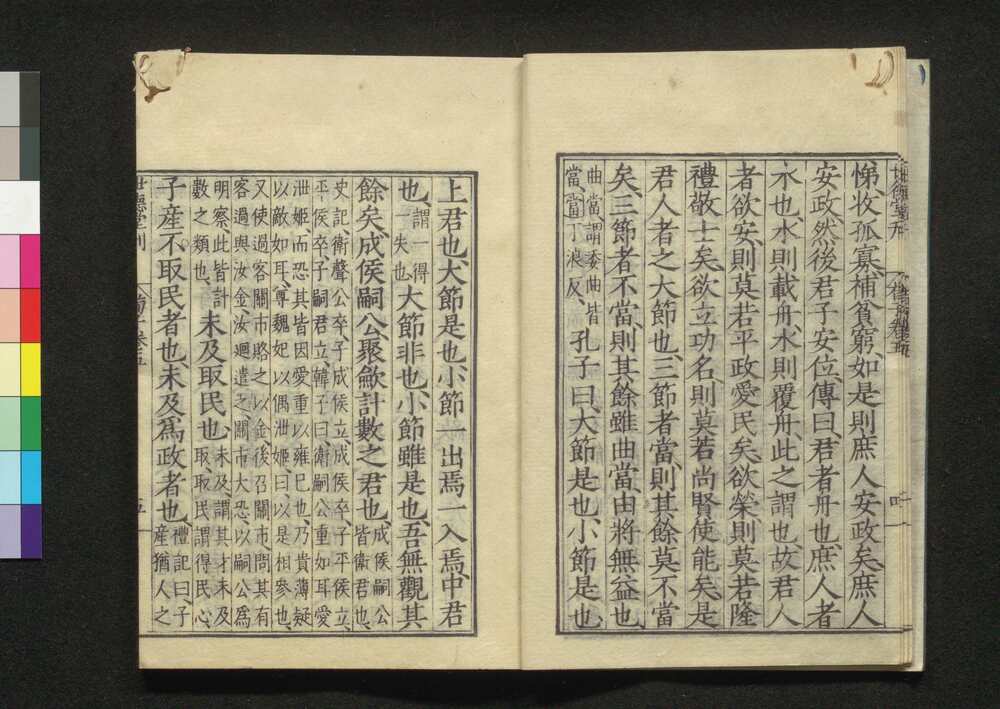 悌、收孤寡、補貧窮、如是則庶人安政矣、庶人
安政、然後君子安位、傳曰、君者舟也、庶人者
水也、水則載舟、水則覆舟、此之謂也、故君人
者欲安、則莫若平政愛民矣、欲榮則莫若隆
禮敬士矣、欲立功名、則莫若尚賢使能矣、是
君人者之大節也、三節者當、則其餘莫不當
矣、三節者不當、則其餘雖曲當、由將無益也、
曲當謂委曲皆
當、當丁浪反、
孔子曰、大節是也、小節是也、
上君也、大節是也、小節一出焉一入焉、中君
也、
謂一得
一失也
大節非也、小節雖是也、吾無觀其
餘矣、成侯嗣公、聚斂計數之君也、
成侯嗣公
皆衛君也、
史記、衛聲公卒子成侯立、成侯卒、子平侯立、
平侯卒、子嗣君立、韓子曰、衛嗣公重如耳愛
泄姬、而恐其皆因愛重以雍己也、乃貴薄疑
以敵如耳、尊魏妃以偶泄姬、曰、以是相參也、
又使過客關市賂之以金、後召關市、問其有
客過與汝金、汝廻遣之、關市大恐、以嗣公爲
明察、此皆計
數之類也、
未及取民也、
未及、謂其才未及
取、取民謂得民心、
子產不取民者也、未及爲政者也、
禮記曰、子
產猶人之
世德堂刊
卷五
五